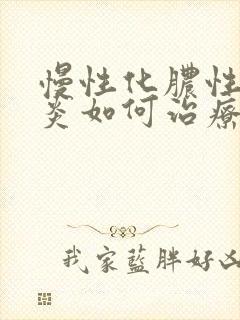 慢性化膿性
炎如何治療
我家藍胖好凶